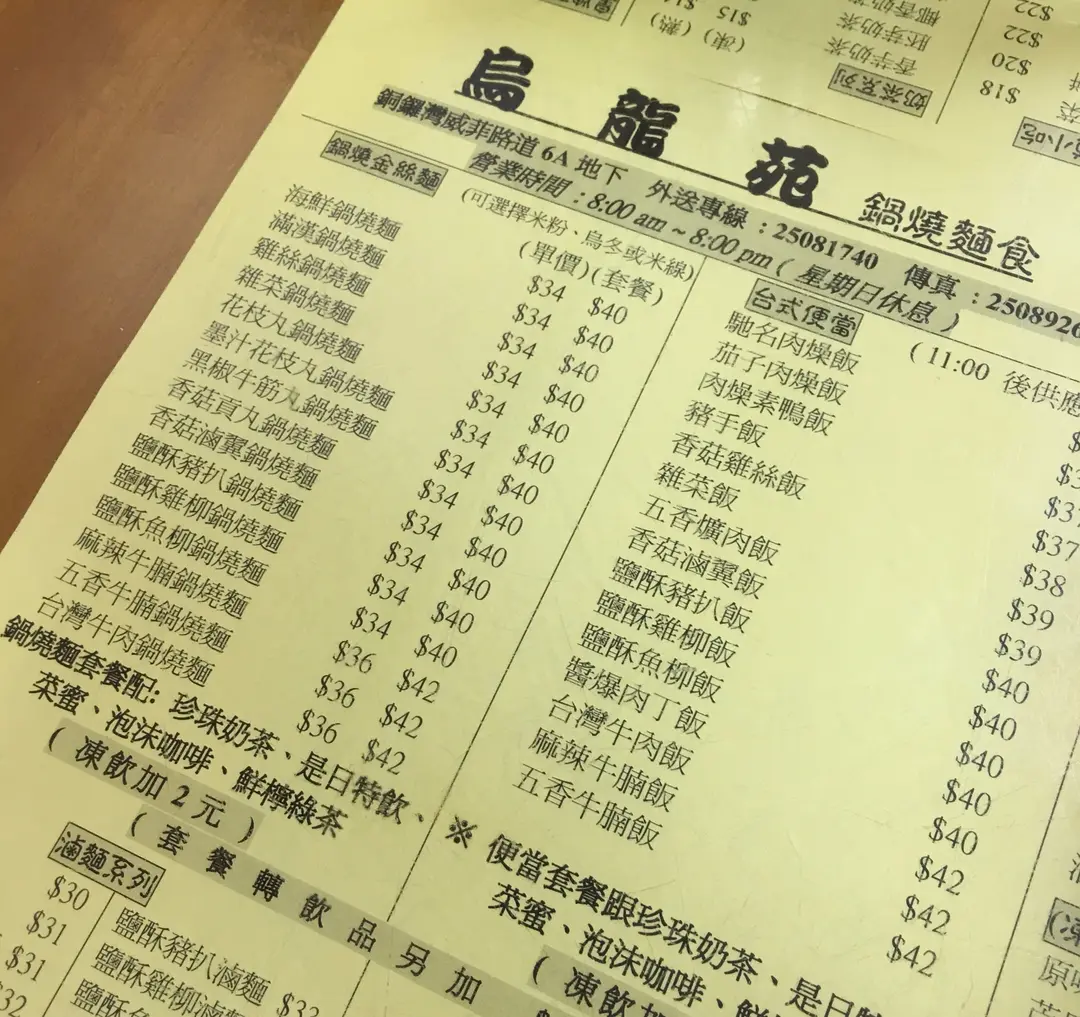 烏龍苑 鍋燒麵食
銅鑼灣威菲路道 6A 地下 外送專線：25081740 傳真：2508926
營業時間：8:00 am ~ 8:00 pm ( 星期日休息 )
鍋燒金絲麵
(可選擇米粉、烏冬或米線)
(單價) (套餐)
海鮮鍋燒麵 $34 $40
滿漢鍋燒麵 $34 $40
雞絲鍋燒麵 $34 $40
雜菜鍋燒麵 $34 $40
花枝丸鍋燒麵 $34 $40
墨汁花枝丸鍋燒麵 $34 $40
黑椒牛筋丸鍋燒麵 $34 $40
香菇貢丸鍋燒麵 $34 $40
香菇滷羹鍋燒麵 $34 $40
鹽酥豬扒鍋燒麵 $34 $40
鹽酥雞柳鍋燒麵 $34 $40
鹽酥魚柳鍋燒麵 $34 $40
麻辣牛腩鍋燒麵 $36 $42
五香牛腩鍋燒麵 $36 $42
台灣牛肉鍋燒麵 $36 $42
鍋燒麵套餐配: 珍珠奶茶、是日特飲、
菜蜜、泡沫咖啡、鮮檸綠茶
( 凍飲加 2 元 )
( 套餐轉飲品另加
台式便當
( 11:00 後供應
馳名肉燥飯
茄子肉燥飯
肉燥素鴨飯
豬手飯
香菇雞絲飯
雜菜飯
五香爌肉飯
香菇滷羹飯
鹽酥豬扒飯
鹽酥雞柳飯
鹽酥魚柳飯
醬爆肉丁飯
台灣牛肉飯
麻辣牛腩飯
五香牛腩飯
$37
$38
$39
$39
$40
$40
$40
$40
$40
$42
$42
$42
※ 便當套餐跟珍珠奶茶、是日特
菜蜜、泡沫咖啡、鮮
( 凍飲加
滷麵系列
$30
$31
$31
$32
鹽酥豬扒滷麵
鹽酥雞柳滷麵
鹽酥
奶茶系列
香芋奶茶
胚芽奶茶
椰香奶茶
(凍) (熱)
$15
$18
$20
$22
$22
小吃